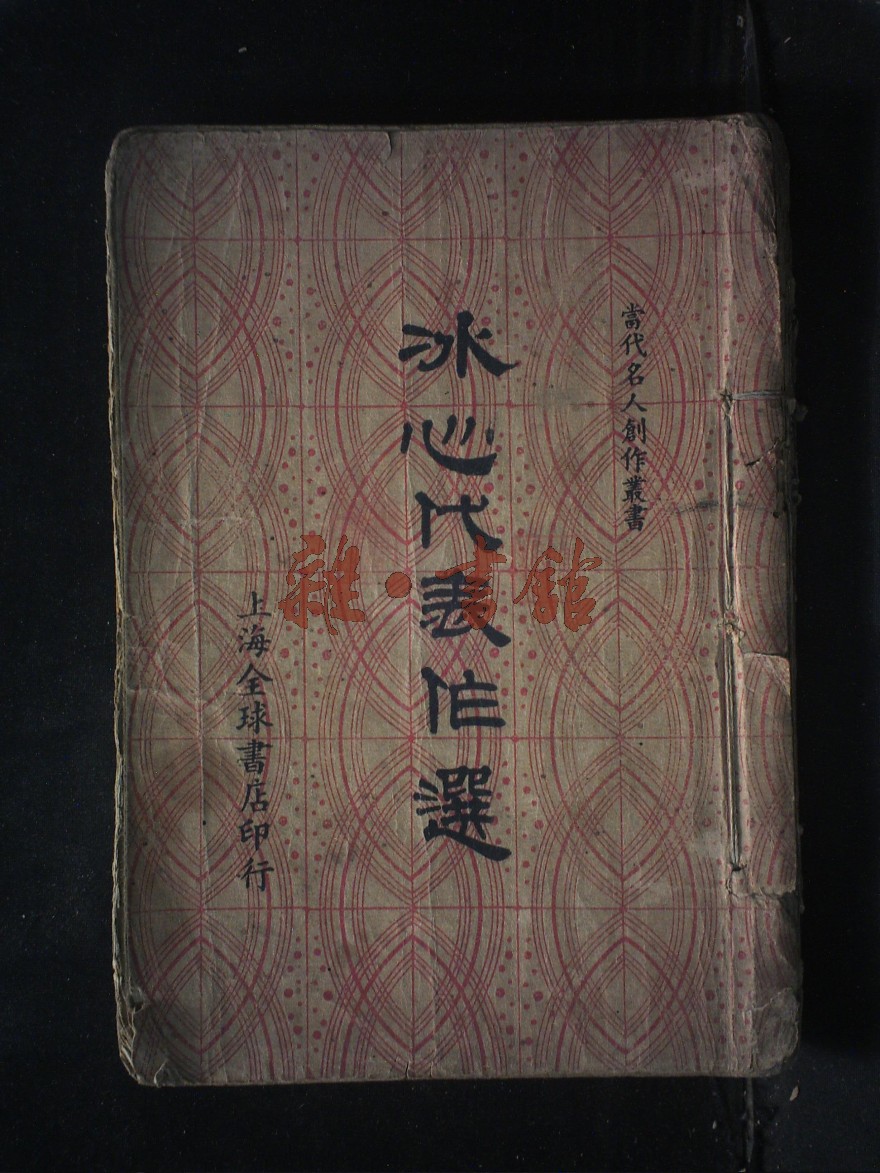 當代名人創作叢書
冰心代表作選
上海全球書店印行
雜·書館